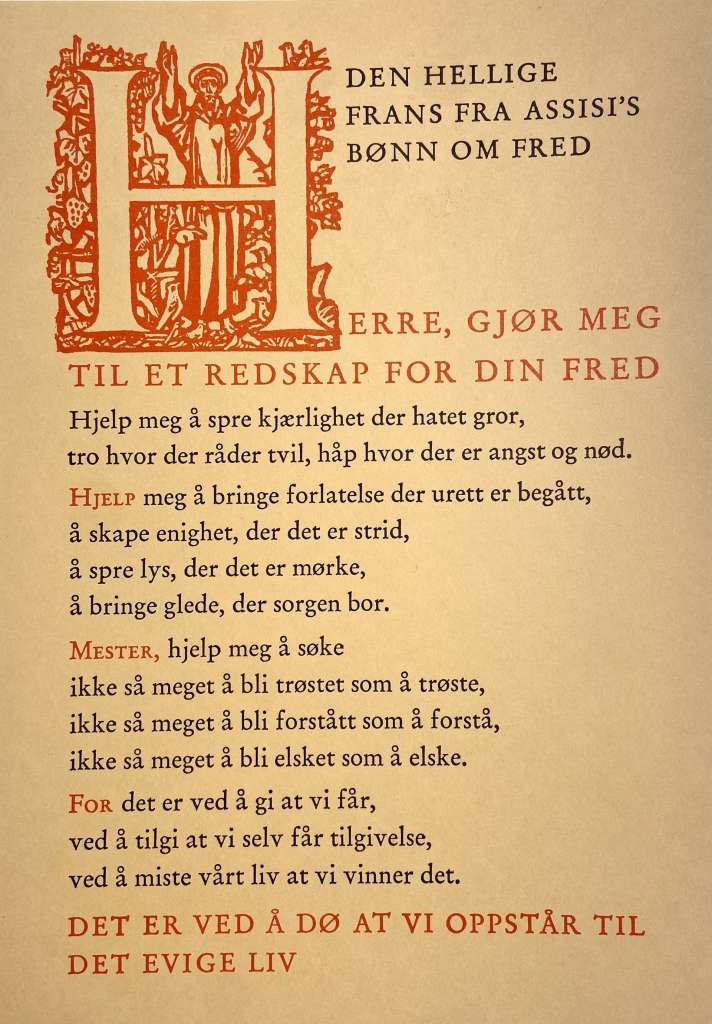 DEN HELLIGE
FRANS FRA ASSISI'S
BØNN OM FRED
HERRE, GJØR MEG
TIL ET REDSKAP FOR DIN FRED
Hjelp meg å spre kjærlighet der hatet gror,
tro hvor der råder tvil, håp hvor der er angst og nød.
HJELP meg å bringe forlatelse der urett er begått,
å skape enighet, der det er strid,
å spre lys, der det er mørke,
å bringe glede, der sorgen bor.
MESTER, hjelp meg å søke
ikke så meget å bli trøstet som å trøste,
ikke så meget å bli forstått som å forstå,
ikke så meget å bli elsket som å elske.
FOR det er ved å gi at vi får,
ved å tilgi at vi selv får tilgivelse,
ved å miste vårt liv at vi vinner det.
DET ER VED Å DØ AT VI OPPSTÅR TIL
DET EVIGE LIV